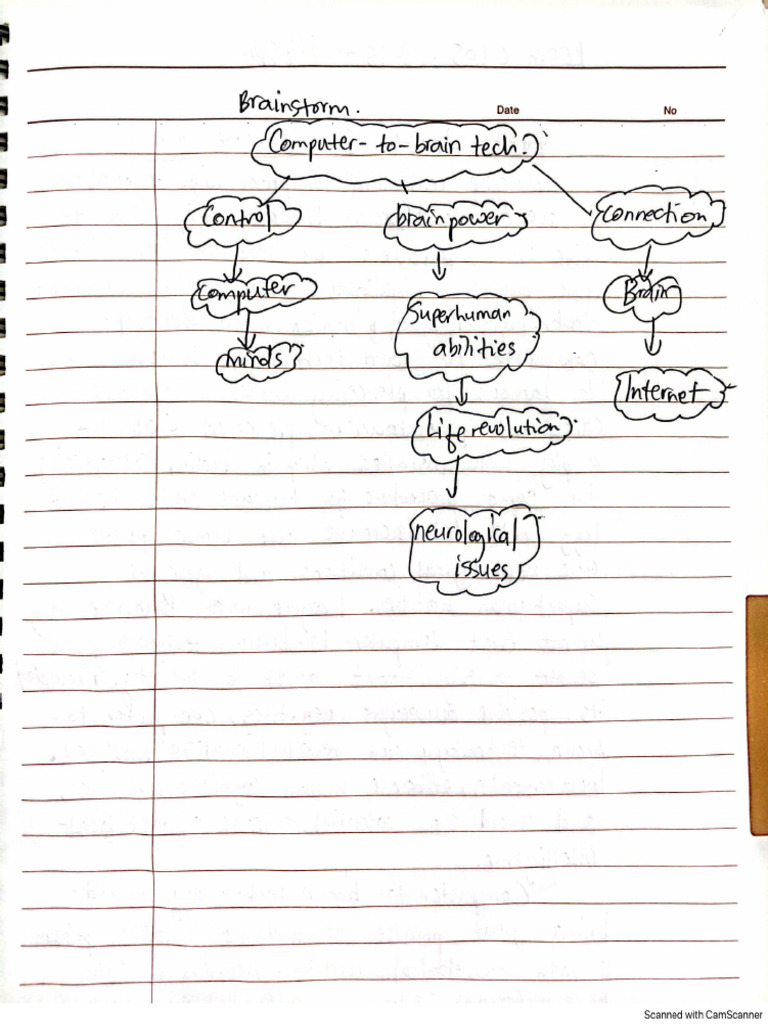 Brainstorm.
Date
No
Computer-to-brain tech.
Control
brain power
Connection
Computer
Superhuman
abilities
Brain
minds
Internet
Life revolution
neurological
issues
Scanned with CamScanner